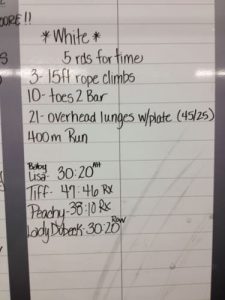 ORE!!
* White *
5 rds for time
3- 15ft rope climbs
10- toes 2 Bar
21- overhead lunges w/plate (45/25)
400m Run
Baby
Lisa- 30:20
Tiff: 47:46 Rx
Peachy- 38:10 Rx
Lady Dubeck- 30:20 Row